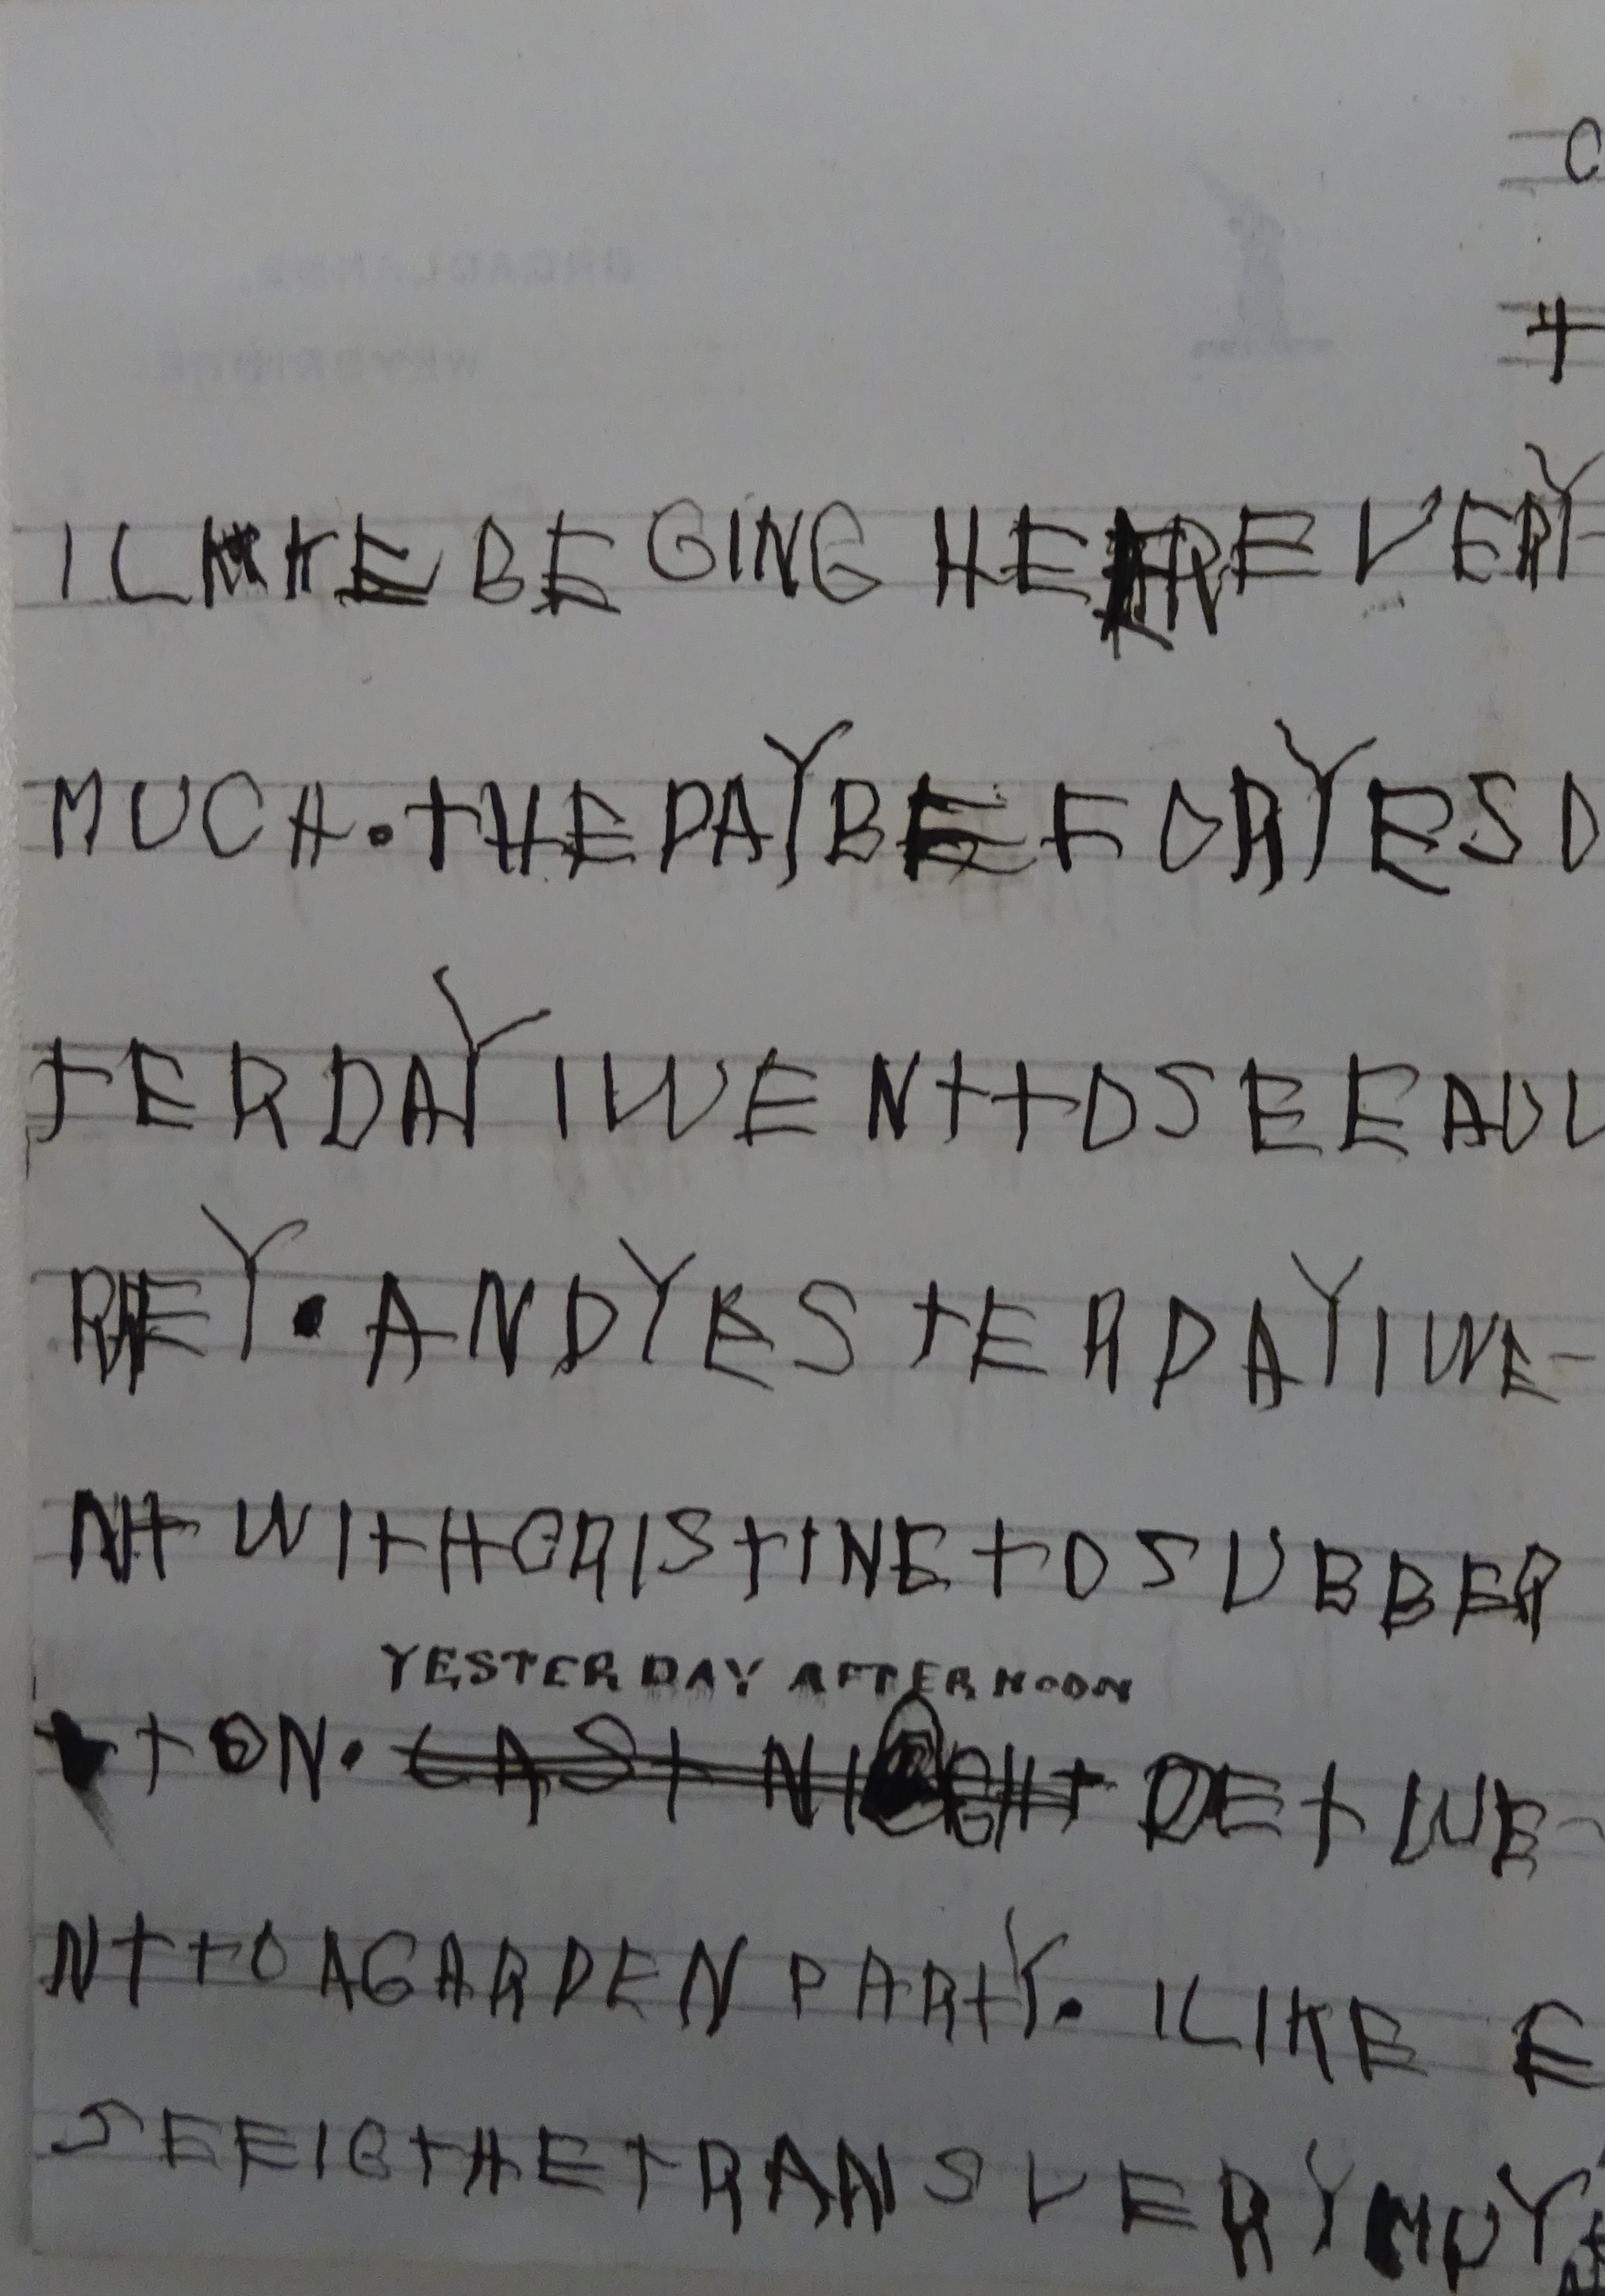 BROADLANDS,
WEYBRIDGE.
I LIKE BE GING HERE VERY-
MUCH. THE DAY BEFOR YES
TERDAY I WENT TO SEE AUD
REY. AND YESTERDAY I WE-
NT WITH CRISTINE TO SUBBER
YESTERDAY AFTERNOON
TON. LAST NIGHT DET WE-
NT TO A GARDEN PARTY. I LIKE
SEEIG THE TRANS VERY